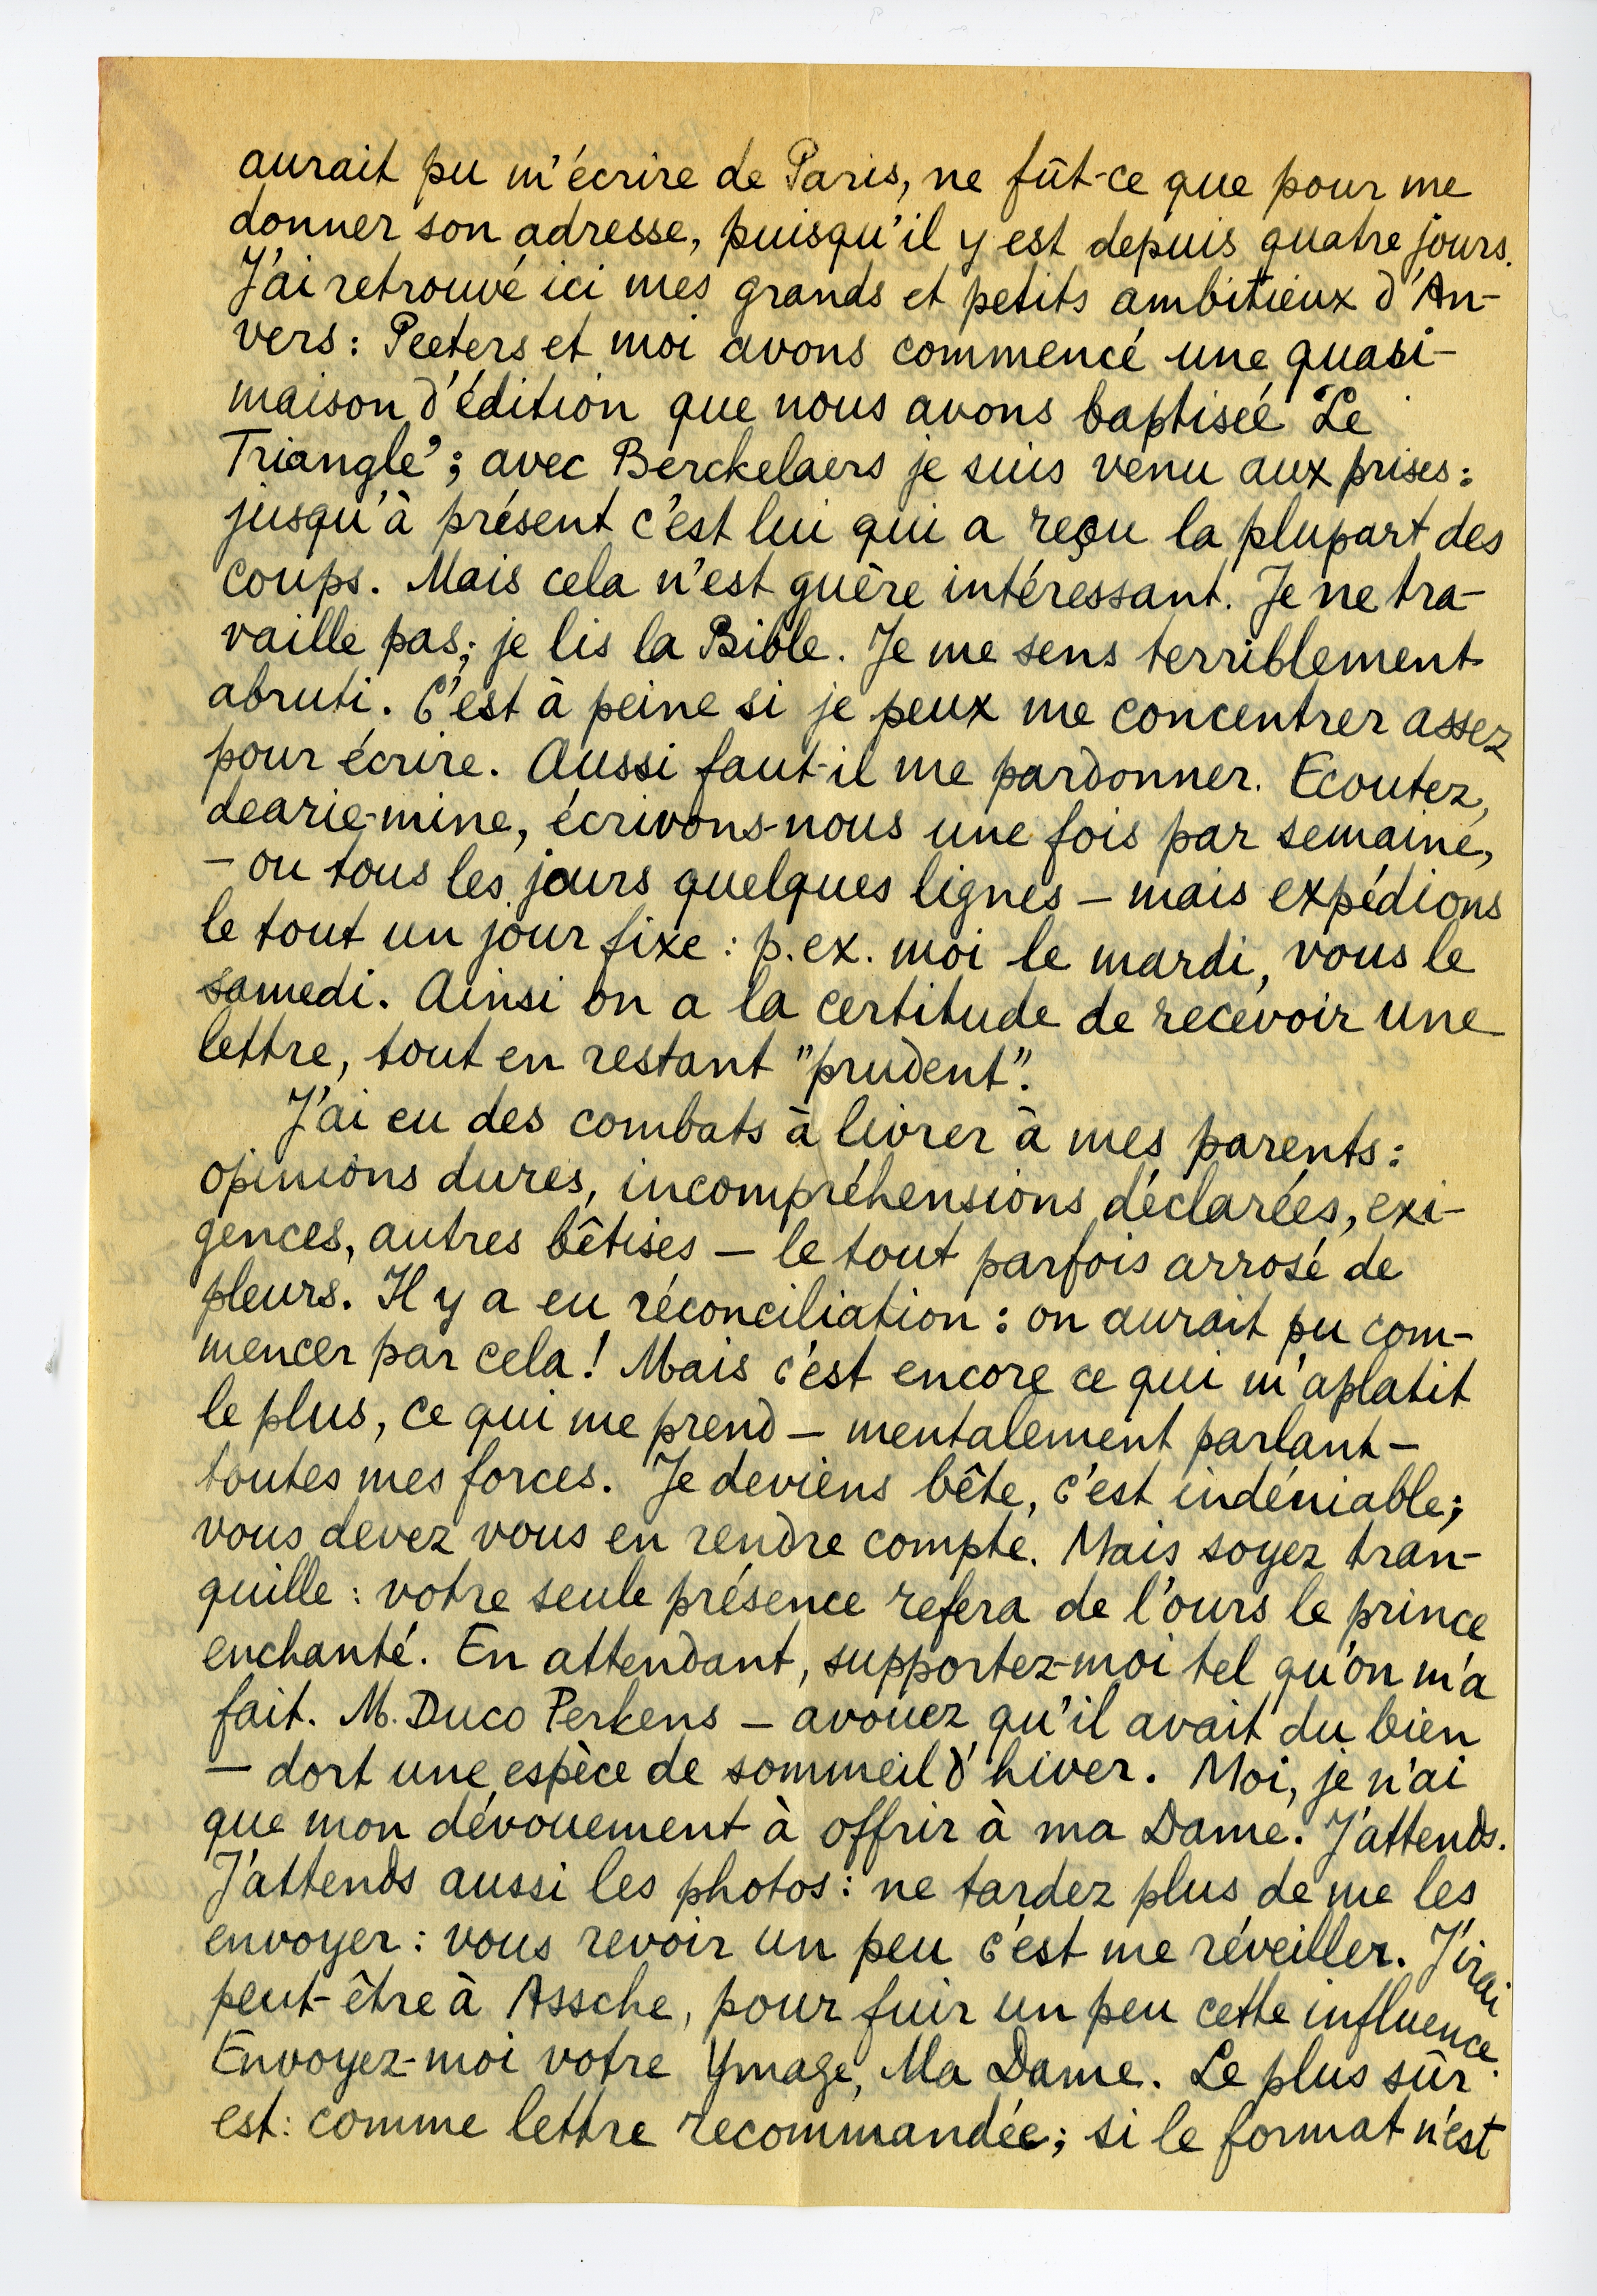 aurait pu m'écrire de Paris, ne fût-ce que pour me
donner son adresse, puisqu'il y est depuis quatre jours.
J'ai retrouvé ici mes grands et petits ambitieux d'An-
vers: Peeters et moi avons commencé une quasi-
maison d'édition que nous avons baptisée "Le
Triangle"; avec Berckelaers je suis venu aux prises:
jusqu'à présent c'est lui qui a reçu la plupart des
coups. Mais cela n'est guère intéressant. Je ne tra-
vaille pas; je lis la Bible. Je me sens terriblement
abruti. C'est à peine si je peux me concentrer assez
pour écrire. Aussi faut-il me pardonner. Ecoutez,
dearie-mine, écrivons-nous une fois par semaine,
– ou tous les jours quelques lignes – mais expédions
le tout un jour fixe: p.ex. moi le mardi, vous le
samedi. Ainsi on a la certitude de recevoir une
lettre, tout en restant "prudent".
J'ai eu des combats à livrer à mes parents:
opinions dures, incompréhensions déclarées, exi-
gences, autres bêtises – le tout parfois arrosé de
pleurs. Il y a eu réconciliation: on aurait pu com-
mencer par cela! Mais c'est encore ce qui m'aplatit
le plus, ce qui me prend – mentalement parlant –
toutes mes forces. Je deviens bête, c'est indéniable;
vous devez vous en rendre compte. Mais soyez tran-
quille: votre seule présence refera de l'ours le prince
enchanté. En attendant, supportez-moi tel qu'on m'a
fait. M. Duco Perkens – avouez qu'il avait du bien
– dort une espèce de sommeil d'hiver. Moi, je n'ai
que mon dévouement à offrir à ma Dame. J'attends.
J'attends aussi les photos: ne tardez plus de me les
envoyer: vous revoir un peu c'est me réveiller. J'irai
peut-être à Assche, pour fuir un peu cette influence.
Envoyez-moi votre Ymage, Ma Dame. Le plus sûr
est: comme lettre recommandée; si le format n'est